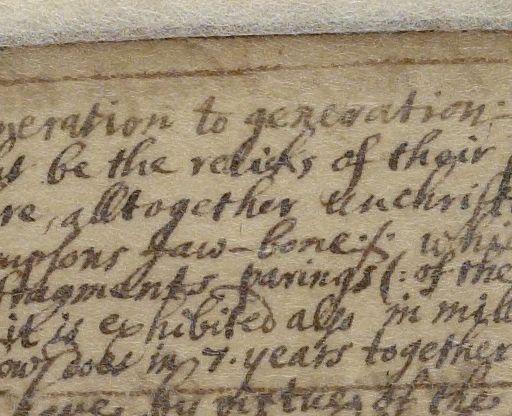 neration to generation:
be the relicks of their
re, alltogether unchrist
Jaw-bone whi
fragments parings (: of the
it is exhibited also in mill
does in 7. years together
by virtue of the